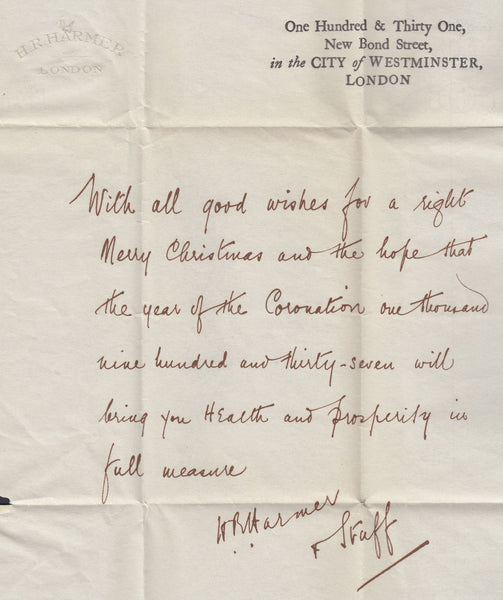 H.R. HARMER.
LONDON
One Hundred & Thirty One,
New Bond Street,
in the CITY of WESTMINSTER,
LONDON
With all good wishes for a right
Merry Christmas and the hope that
the year of the Coronation one thousand
nine hundred and thirty-seven will
bring you Health and prosperity in
full measure
H R Harmer
& Staff